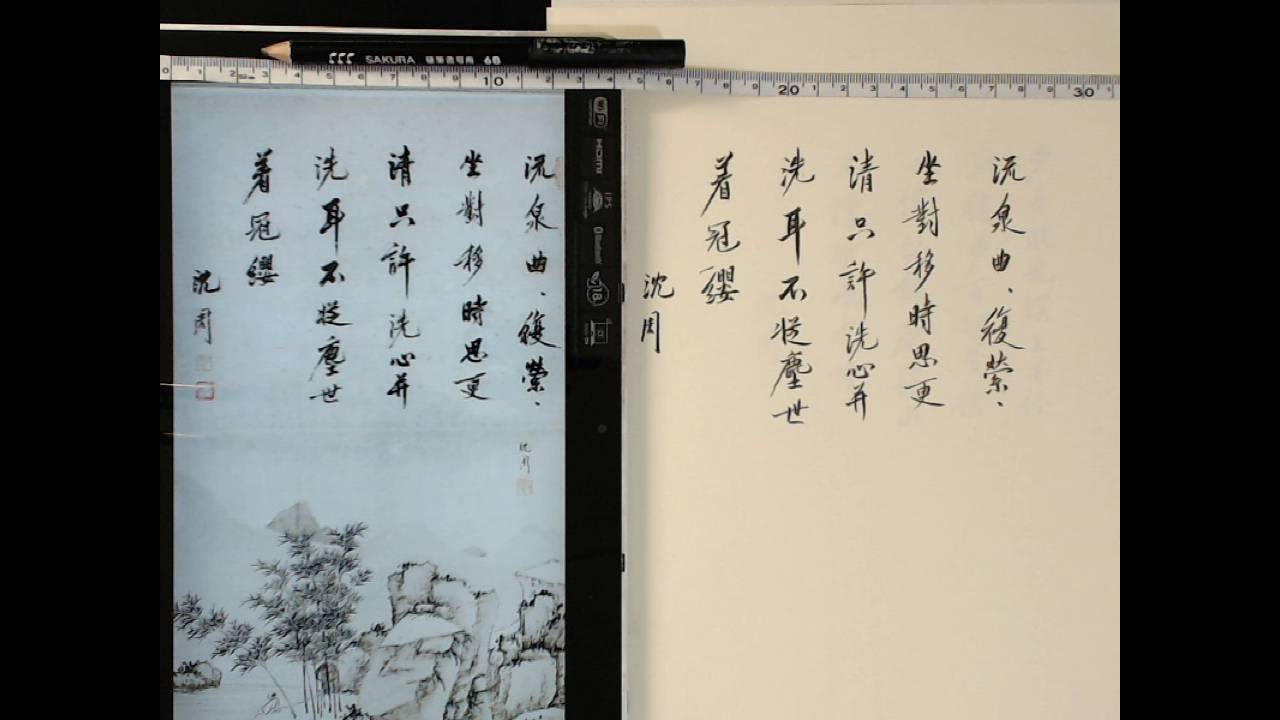 SAKURA 硬筆書写用 6B
10
20
30
流泉曲、復縈、
坐對移時思更
清只許洗心并
洗耳不從塵世
着冠纓
沈周
沈周
Wi-Fi
HDMI
IPS
Bluetooth
流泉曲、復縈、
坐對移時思更
清只許洗心并
洗耳不從塵世
着冠纓
沈周